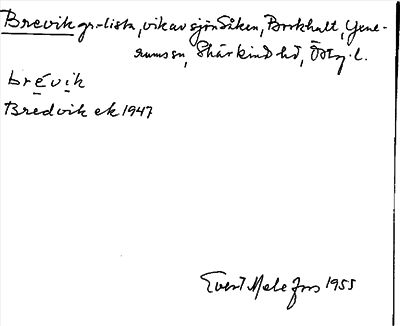 Brevik gr-lista, vik av sjön Såken, Borkhult, Yxne-
rums sn, Skärkind hd, Östg. l.
brévik
Bredvik ek 1947
Evert Melefors 1955